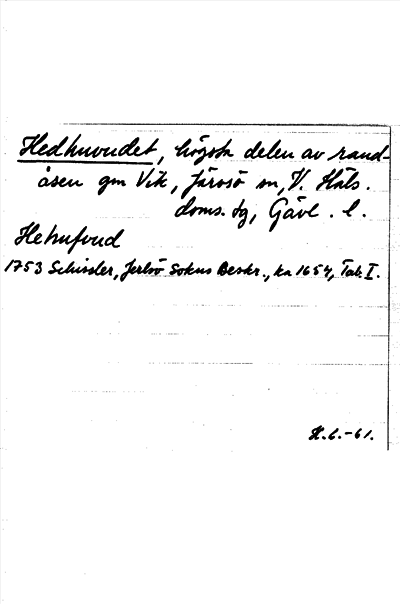 Hedhuvudet, högsta delen av rand-
åsen gm Vik, Järvsö sn, V. Häls.
doms. tg, Gävl. l.
Hehufvud
1753 Schissler, Jerlsö Sokns Beskr., ka 1654, Tab. I.
H.L.-61.